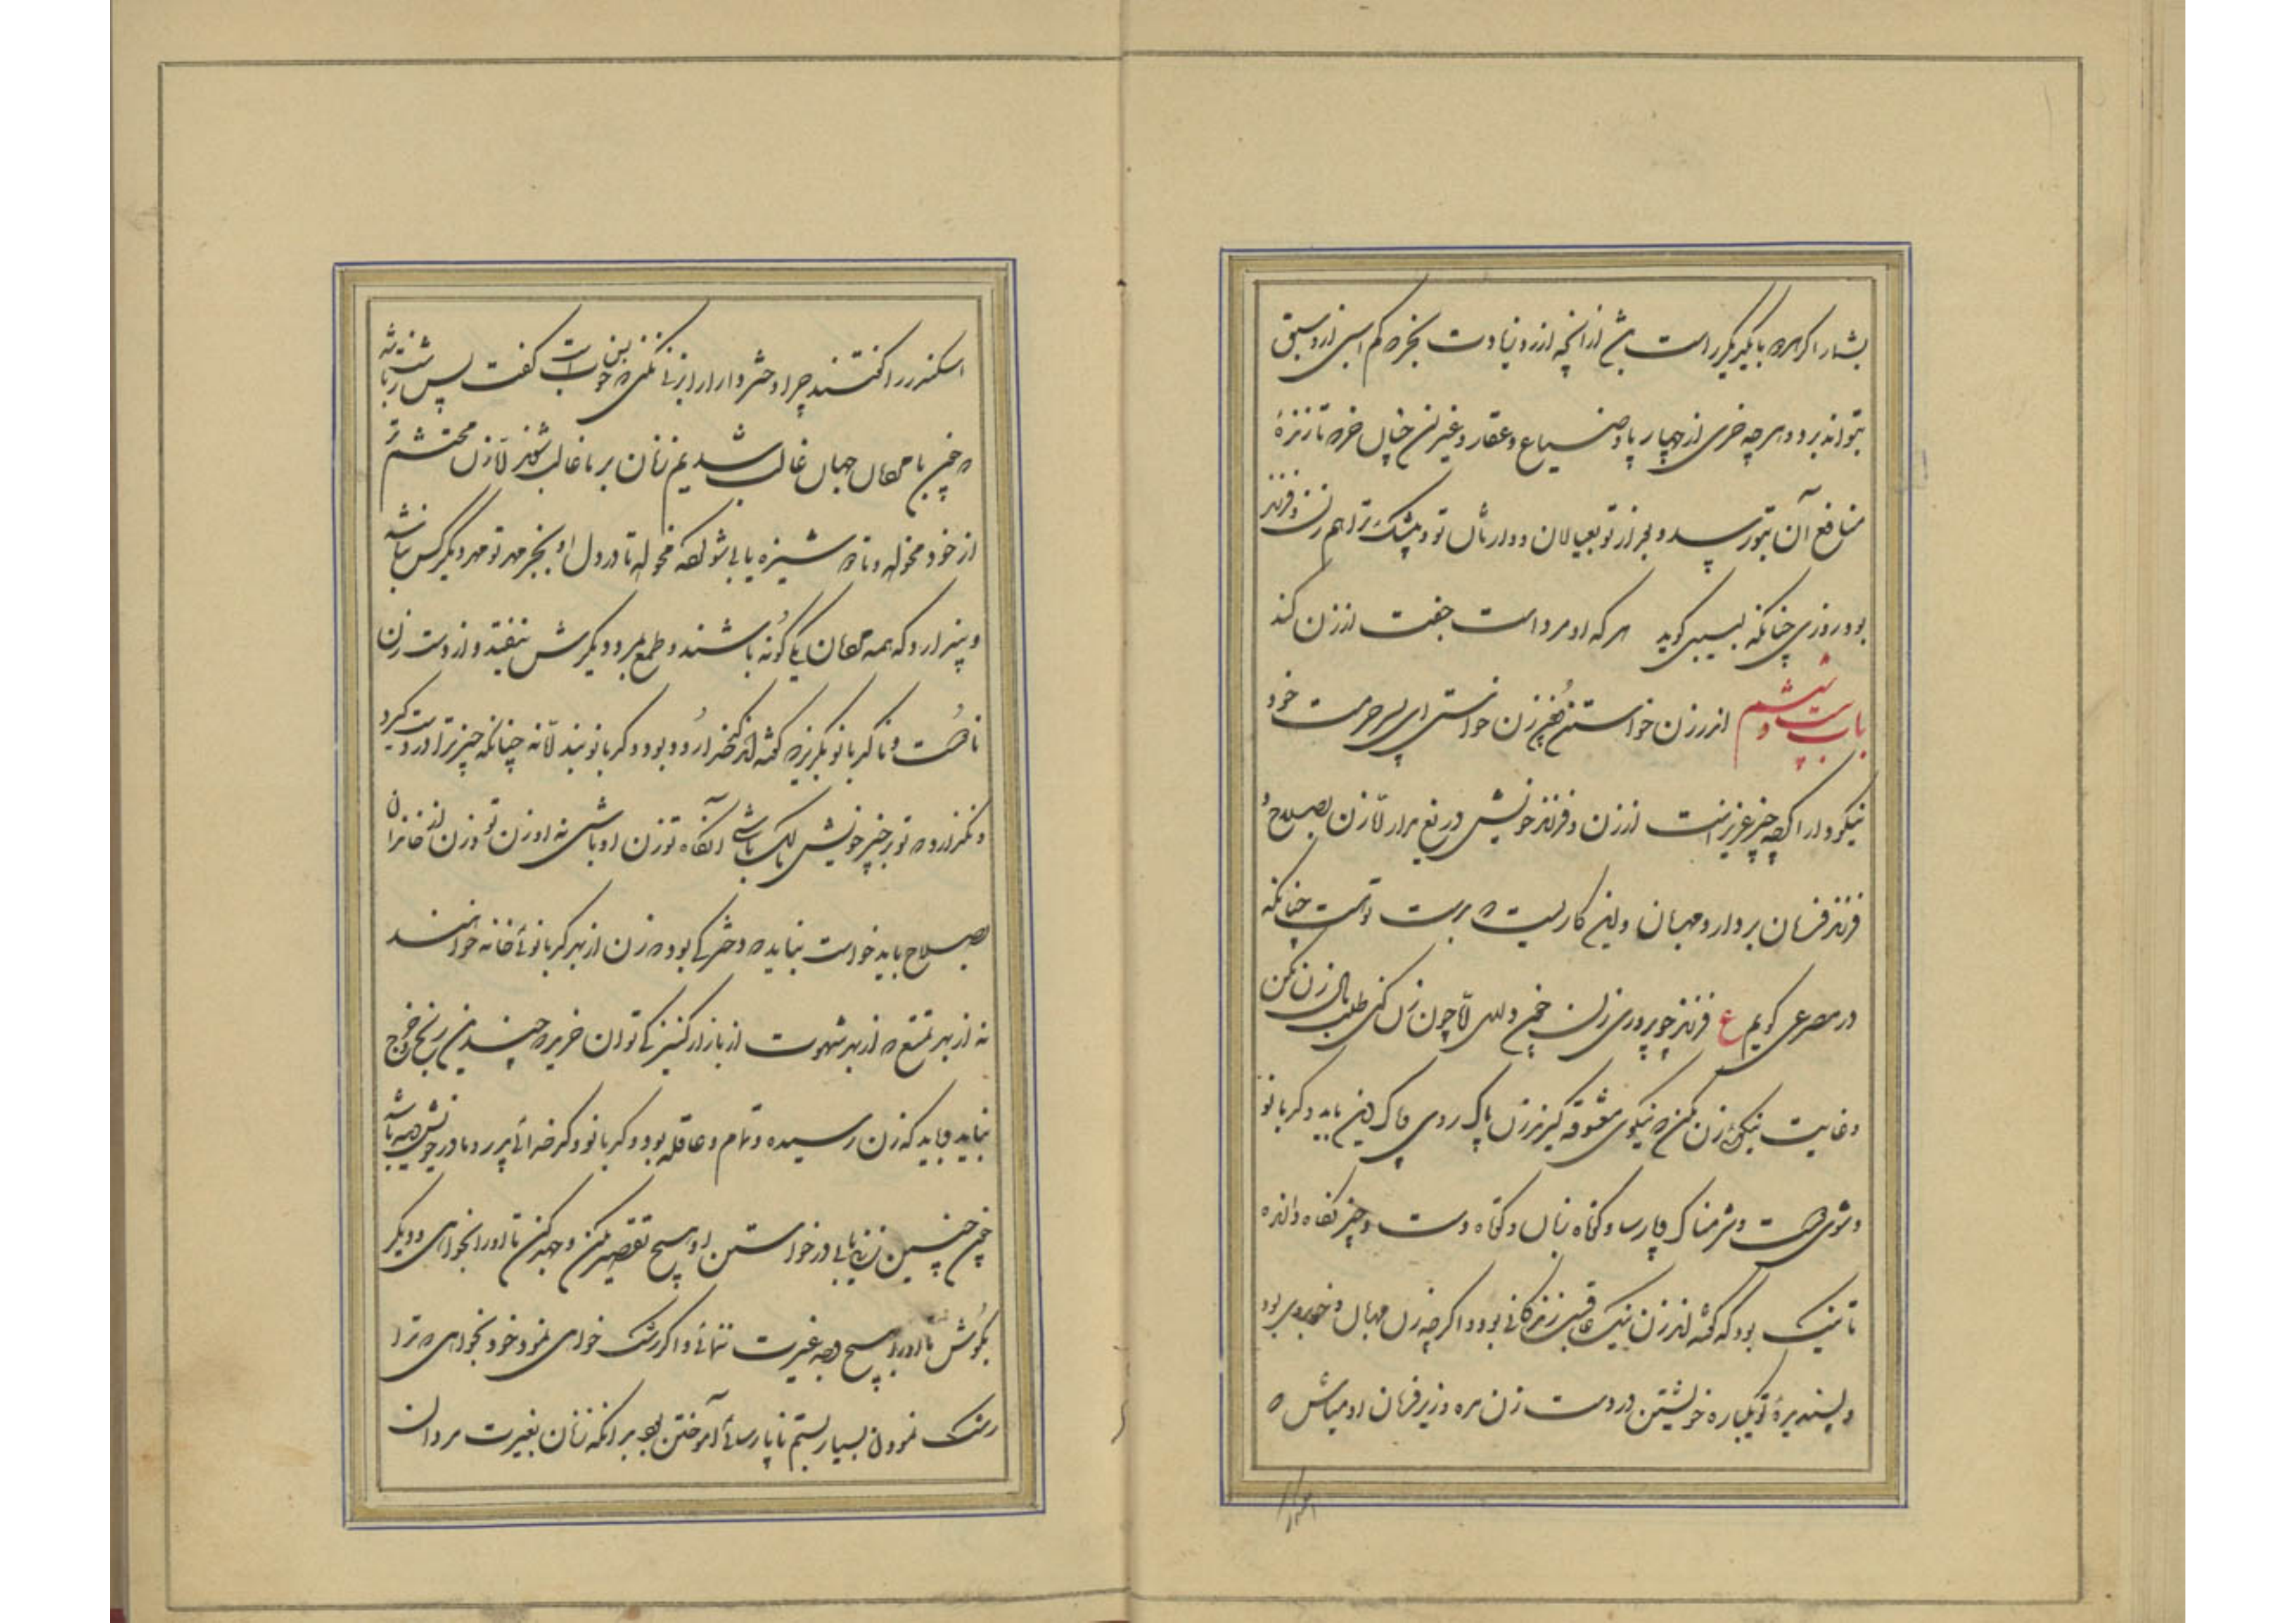 بشمار اگر هر ده بایکدیگر راست بیش از آنچه ارزد زیادت بخر که کم اسبی از ده سبق
بتواند برد و هر چه خری از چهارپا و ضیاع و عقار و غیر آن چنان خر که تا زنده
منافع آن بتو رسد و بعد از تو بعیالان و وارثان تو و بیشک ترا هم زن و فرزند
بود روزی چنانکه لبیبی گوید هر که او مرد است جفت از زن کند
باب بیست و ششم اندر زن خواستن چون زن خواستی ای پسر حرمت خود
نیکو دار اگرچه چیز عزیز است از زن و فرزند خویش دریغ مدار الا از زن بصلاح و
فرزند فرمان بردار و مهربان و این کاریست که بدست تو است چنانکه
در مصرعی گویم ع فرزند چو پروری زن چون داری الا چون زن کنی طلب مال زن مکن
و غایت نیکوئی زن مکن که نیکوی معشوقه گیرند زن پاک روی و پاک دین باید و کدبانو
و شوی دوست و شرمناک و پارسا و کوتاه زبان و کوتاه دست و چیز نگاه دارنده
تا نیک بود که گفته‌اند زن نیک عافیت زندگانی بود و اگرچه زن مهربان و خوبروی بود
و پسندیدهٔ تو یکباره خویشتن در دست زن مده و زیر فرمان او مباش که
اسکندر را گفتند چرا دختر دارا را بزنی نکنی که بس خوب است گفت بس زشت باشد
که چون با مردان جهان غالب شدیم زنان بر ما غالب شوند الا زن محتشم تر
از خود مخواه و تا دوشیزه یابی شوی کرده مخواه تا در دل او بجز مهر تو مهر دیگر کس نباشد
و پندارد که همه مردان یک گونه باشند و طمع مرد دیگرش نیفتد و از دست زن
نادوست و ناکدبانو بگریز که گفته‌اند کدخدا رود بود و کدبانو بند الا نه چنانکه چیز ترا در دست گیرد
و نگذارد که تو بر چیز خویش مالک باشی آنگاه تو زن او باشی نه او زن تو و زن از خاندان
بصلاح باید خواست نباید که دختر کی بود که زن از بهر کدبانوئی خانه خواهند
نه از بهر تمتع که از بهر شهوت از بازار کنیزکی توان خرید که چندین رنج و خرج
نباید و باید که زن رسیده و تمام و عاقله بود و کدبانو و کدخدائی پدر و مادر خویش دیده باشد
چون چنین زن یابی در خواستن او هیچ تقصیر مکن و جهد کن تا او را بخواهی و دیگر
بکوش تا او را بهیچ وجه غیرت ننمائی و اگر رشک خواهی نمود خود نخواهی که ترا
رشک نمودن بسیار بستم ناپارسائی آموختن بود بدانکه زنان بغیرت مردان